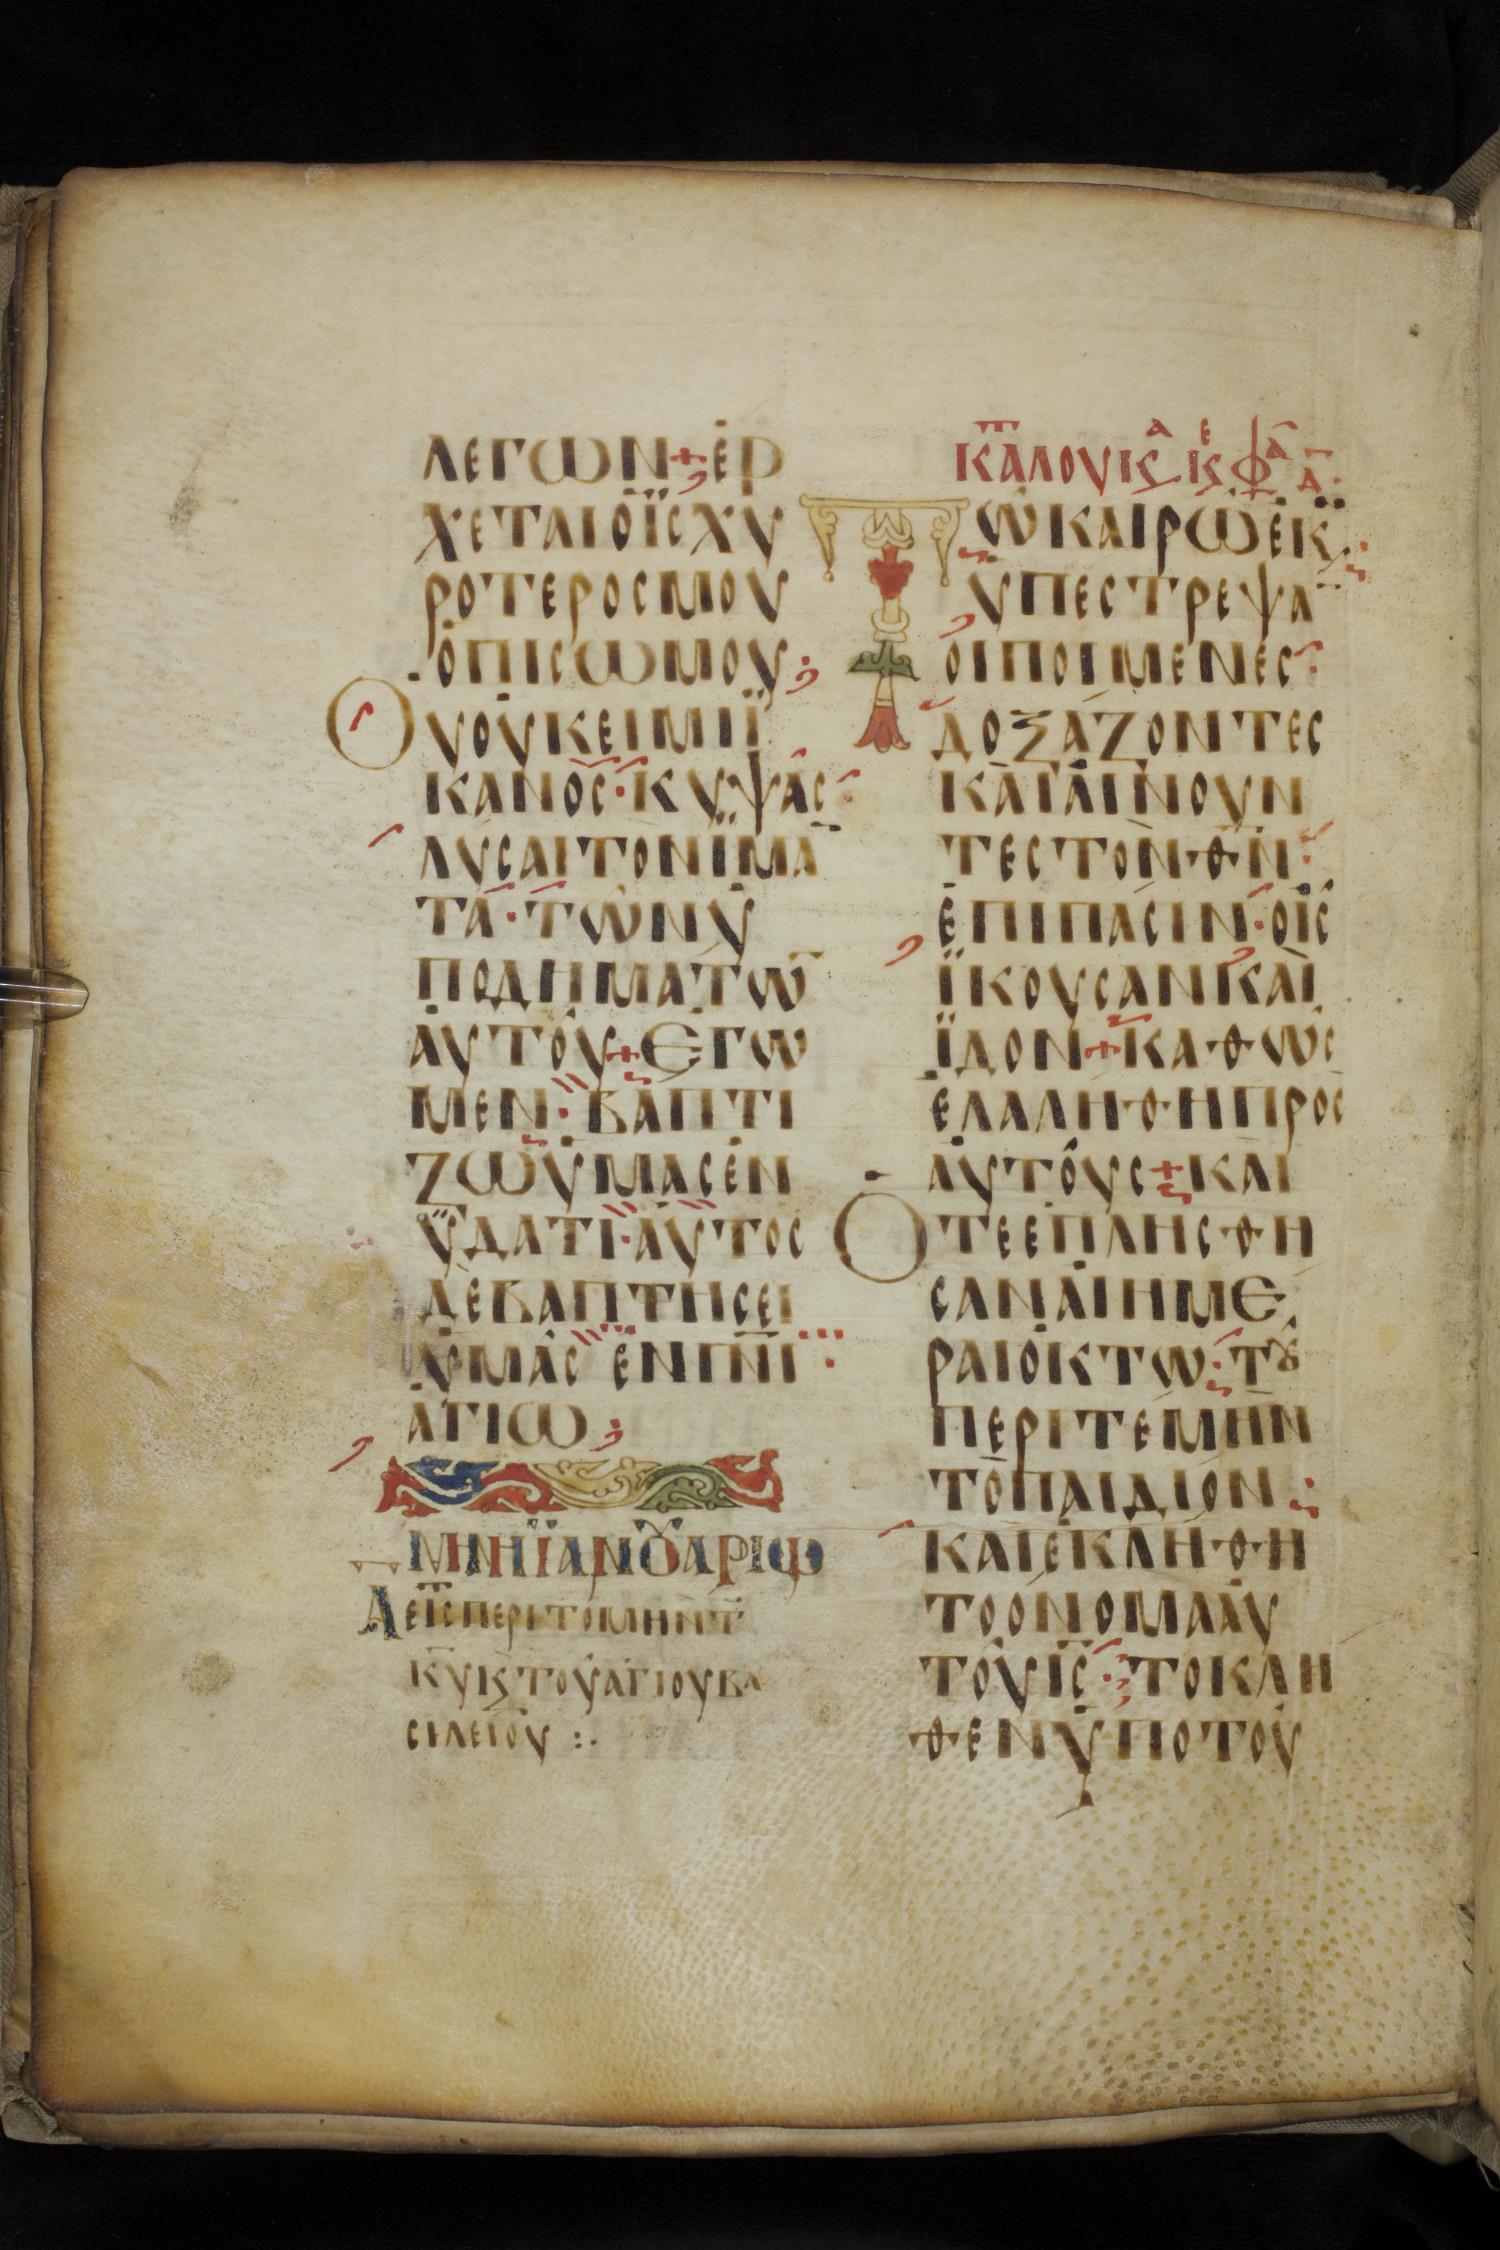 ΛΕΓΩΝ + ἘΡ
ΧΕΤΑΙ Ὁ ΪCΧΥ
ΡΟΤΕΡΟC ΜΟΥ
ὈΠΙCΩ ΜΟΥ
ΟΥ ΟΥΚ ΕΙΜΙ Ϊ
ΚΑΝΟC · ΚΥΨΑC
ΛΥCΑΙ ΤΟΝ ΪΜΑ̅
ΤΑ · ΤΩΝ Ὑ
ΠΟΔΗΜΑΤΩ̅
ΑΥΤΟΥ + ΕΓΩ
ΜΕΝ · ΒΑΠΤΙ
ΖΩ ΥΜΑC ΕΝ
ΫΔΑΤΙ · ΑΥΤΟC
ΔΕ ΒΑΠΤΗCΕΙ
ΥΜΑC ΕΝ Π̅Ν̅Ι
ΑΓΙΩ
ΜΗΝΗ ΪΑΝΟΥΑΡΙΩ
Α ΕΙC ΠΕΡΙΤΟΜΗΝ Τ̅
Κ̅Υ̅ Κ̀ ΤΟΥ ΑΓΙΟΥ ΒΑ
CΙΛΕΙΟΥ :·
Κ̅Α ΛΟΥΚ ΚΕΦΑ Α̅
ΤΩ ΚΑΙΡΩ ἘΚ
ΫΠΕCΤΡΕΨΑ̅
ΟΙ ΠΟΙΜΕΝΕC
ΔΟΞΑΖΟΝΤΕC
ΚΑΙ ΑΙΝΟΥΝ
ΤΕC ΤΟΝ Θ̅Ν̅
ΕΠΙ ΠΑCΙΝ · ΟΙC
ΪΚΟΥCΑΝ ΚΑΙ
ΪΔΟΝ + ΚΑΘΩC
ΕΛΑΛΗΘΗ ΠΡΟC
ΑΥΤΟΥC + ΚΑΙ
ΟΤΕ ΕΠΛΗCΘΗ
CΑΝ ΑΙ ΗΜΕ
ΡΑΙ ΟΚΤΩ · ΤȢ
ΠΕΡΙΤΕΜΗΝ
ΤΟ ΠΑΙΔΙΟΝ
ΚΑΙ ΕΚΛΗΘΗ
ΤΟ ΟΝΟΜΑ ΑΥ
ΤΟΥ Ι̅C̅ · ΤΟ ΚΛΗ
ΘΕΝ ΥΠΟ ΤΟΥ